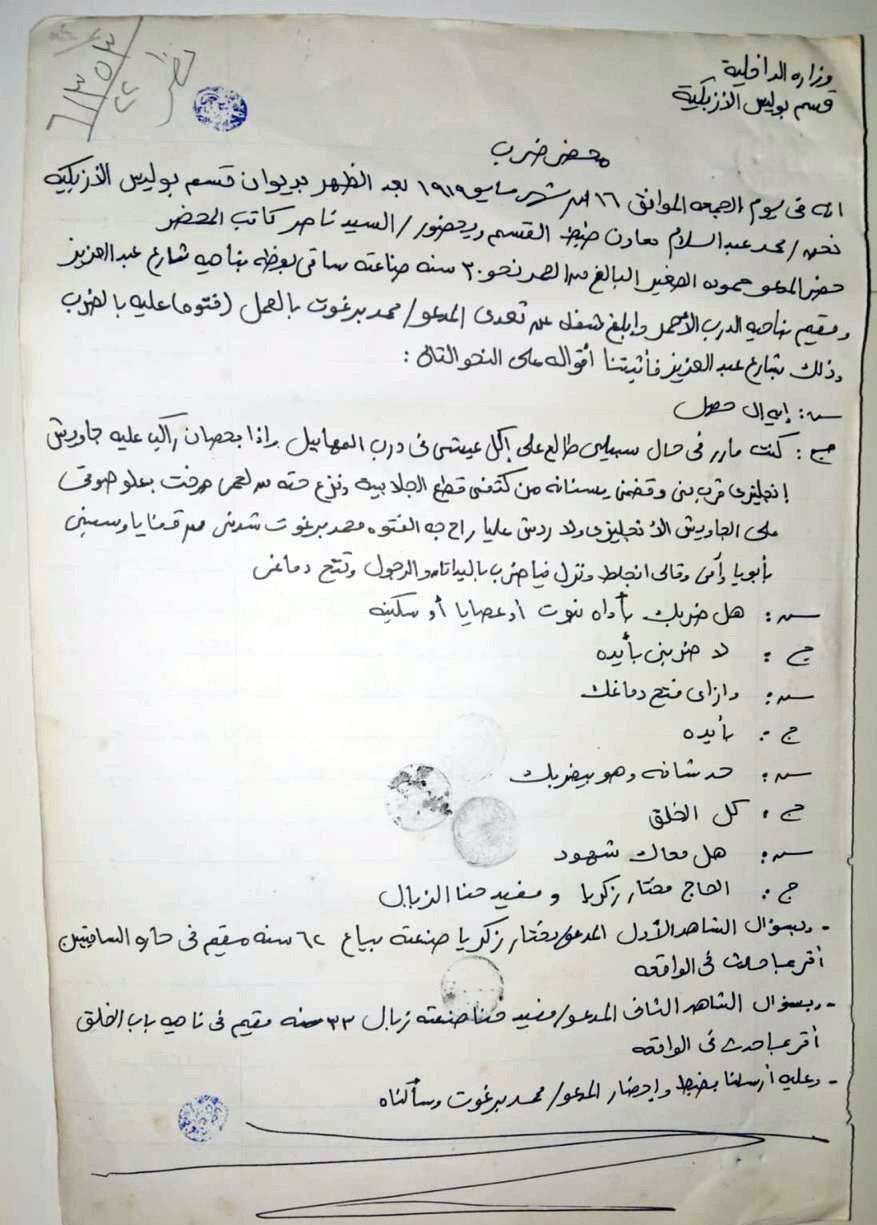 وزاره الداخلية
قسم بوليس الأزبكية
محضر ضرب
انه فى يوم الجمعه الموافق ١٦ من شهر مايو ١٩١٩ بعد الظهر بديوان قسم بوليس الأزبكيه
نحن / محمد عبد السلام معاون ضبط القسم وبحضور / السيد ناصر كاتب المحضر
حضر المدعو حموده الصغير البالغ من العمر نحو ٣٠ سنه صناعته ساقى بوظه بناحيه شارع عبد العزيز
ومقيم بناحيه الدرب الأحمر وابلغ عن تعدى المدعو / محمد برغوت بالعمل (فتوه) عليه بالضرب
وذلك بشارع عبد العزيز فأثبتنا أقواله على النحو التالى :
س : إيه الى حصل
ج : كنت مارر فى حال سبيلى طالع على اكل عيشى فى درب المهابيل واذا بحصان راكب عليه جاويش
إنجليزى قرب منى وقضمنى بسنانه من كتفى قطع الجلابية ونزع حته من لحمى صرخت بعلو صوتى
على الجاويش الأنجليزى ولا ردش عليا راح جه الفتوه محمد برغوت شدنى من قفايا وسبنى
بأبويا وأمى وقالى انجلط ونزل فيا ضرب بالبدانات والرجول وفتح دماغى
س : هل ضربك بأداه نبوت او عصايا أو سكينه
ج : لا ضربنى بأيده
س : وازاى فتح دماغك
ج : بأيده
س : حد شافه وهو بيضربك
ج : كل الخلق
س : هل معاك شهود
ج : الحاج مختار زكريا و مفيد حنا الزبال
- وبسؤال الشاهد الأول المدعو / مختار زكريا صنعته بياع ٦٢ سنه مقيم فى حاره السقايين
أقر بما حدث فى الواقعه
- وبسؤال الشاهد الثانى المدعو / مفيد حنا صنعته زبال ٣٣ سنه مقيم فى ناحيه باب الخلق
أقر بما حدث فى الواقعه
- وعليه أرسلنا بضبط وإحضار المدعو / محمد برغوت وسألناه